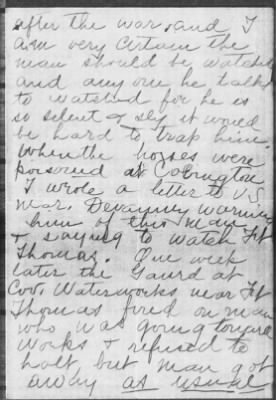 after the war, and I
am very certain the
man should be watched
and any one he talks
to watched for he is
so silent & sly it would
be hard to trap him.
When the horses were
poisoned at Covington
I wrote a letter to U.S
Mar. Devanney warning
him of this man
& saying to watch Ft
Thomas. One week
later the Gaurd at
Cov. Waterworks near Ft
Thomas fired on man
who was going toward
works & refused to
halt but man got
away as usual